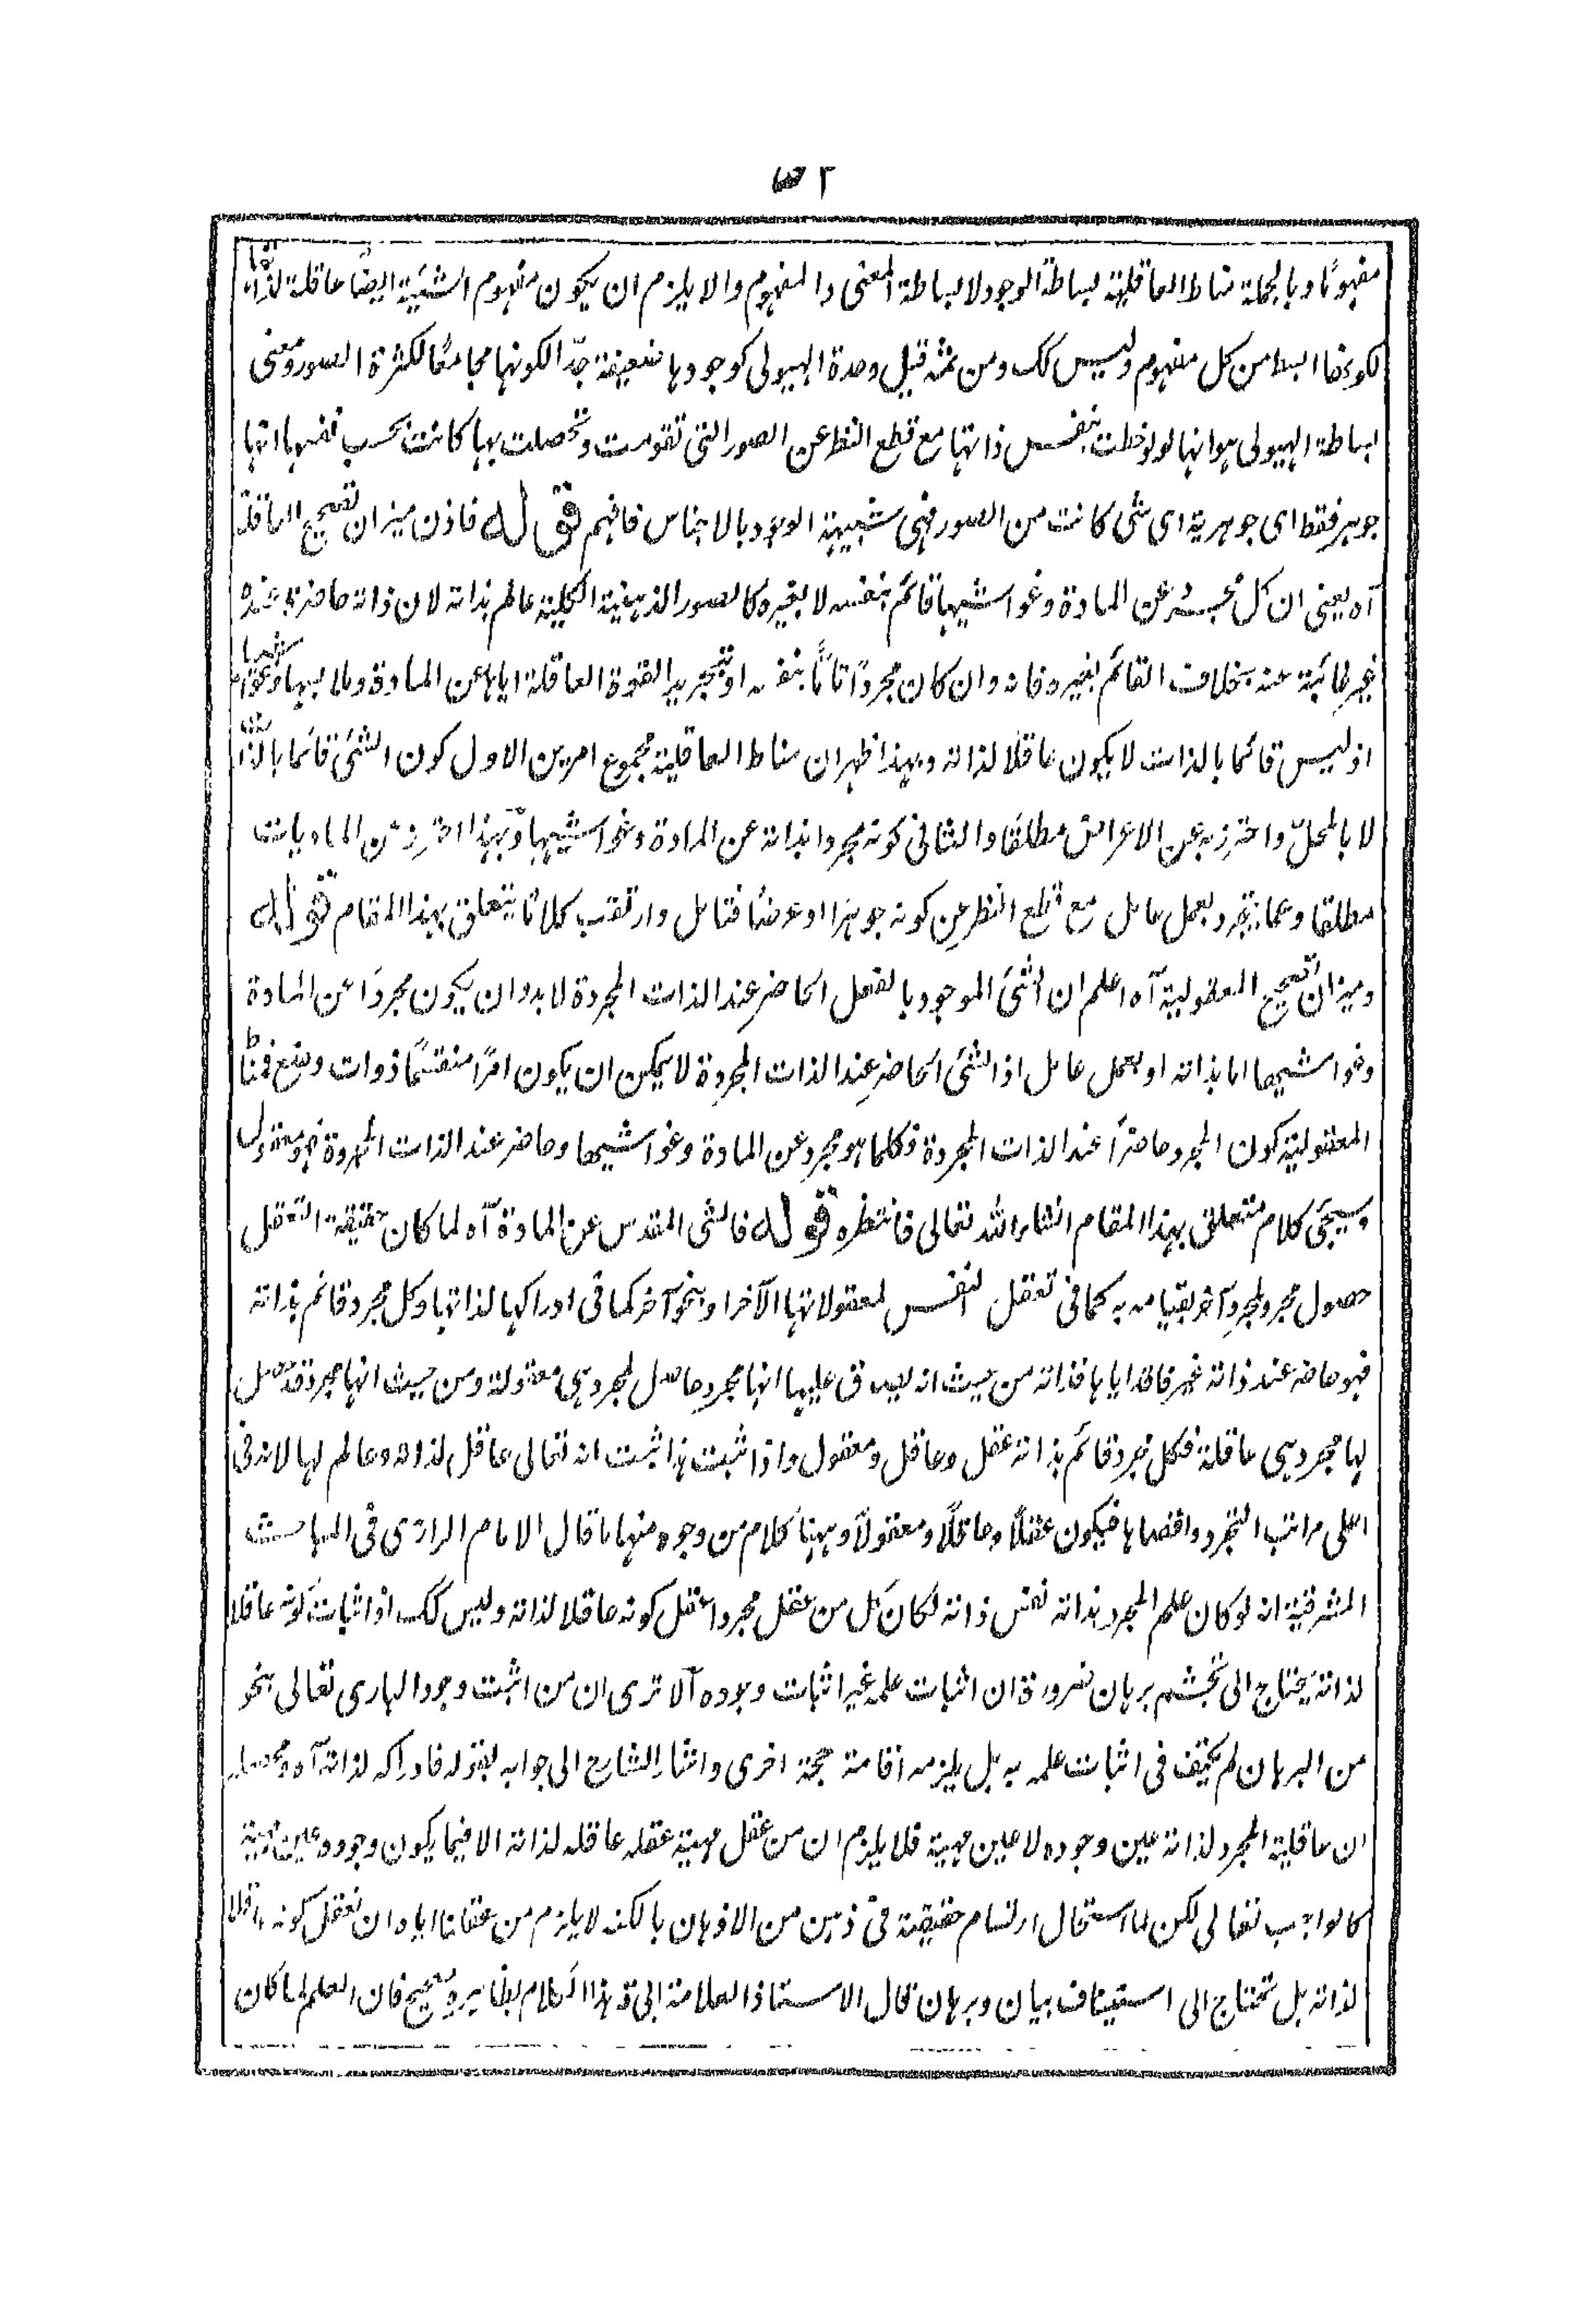 مفهومًا وبالجملة مناط العاقلية بساطة الوجود لا بساطة المعنى والمفهوم والا يلزم ان يكون مفهوم الشيئية ايضًا عاقلة لذاتها
لكونها ابسط من كل مفهوم وليس كك ومن ثمه قيل وحدة الهيولى كوجودها ضعيفة جدّا لكونها مجامعًا لكثرة الصور ومعنى
بساطة الهيولى هو انها لو لوخظت بنفس ذاتها مع قطع النظر عن الصور التى تقومت وتحصلت بها كانت بحسب نفسها انها
جوهر فقط اى جوهرية اى شى كانت من الصور فهى شبيهة الوجود بالاجناس فافهم قوله فاذن ميزان تصحيح العاقلة
آه يعنى ان كل مجرد عن المادة وغواشيها قائم بنفسه لا بغيره كالصور الذهنية الكلية عالم بذاته لان ذاته حاضرة عنده
غير غائبة عنه بخلاف القائم بغيره فانه وان كان مجردًا تامًّا بنفسه او بتجريد القوة العاقلة اياها عن المادة وملابسها وغواشيها
اذ ليس قائما بالذات لا يكون عاقلا لذاته وبهذا ظهر ان مناط العاقلية مجموع امرين الاول كون الشئ قائما بالذات
لا بالمحلّ واحترز به عن الاعراض مطلقا والثانى كونه مجردا بذاته عن المادة وغواشيها وبهذا احترز عن الماديات
مطلقا وعما يتجرد بعمل عامل مع قطع النظر عن كونه جوهرا او عرضًا فتامل وارتقب كلامًا يتعلق بهذا المقام قوله
وميزان تصحيح المعقولية آه اعلم ان الشئ الموجود بالفعل الحاضر عند الذات المجردة لا بد وان يكون مجردًا عن المادة
وغواشيها اما بذاته او بعمل عامل اذ الشئ الحاضر عند الذات المجردة لا يمكن ان يكون امرًا منقسمًا ذوات وضع فمناط
المعقولية كون المجرد حاضرًا عند الذات المجردة فكلما هو مجرد عن المادة وغواشيها وحاضر عند الذات المجردة فهو معقول
وسيجئ كلام متعلق بهذا المقام انشاء الله تعالى فانتظره قوله فالشى المقدس عن المادة آه لما كان حقيقة التعقل
حصول مجرد لمجرد آخر بقيامه به كما فى تعقل النفس لمعقولاتها الآخر او بنحو آخر كما فى ادراكها لذاتها وكل مجرد قائم بذاته
فهو حاضر عند ذاته غير فاقد اياها فذاته من حيث انه يصدق عليها انها مجرد حاصل لمجرد هى معقولة ومن حيث انها مجرد قد حصل
لها مجرد هى عاقلة فكل مجرد قائم بذاته عقل وعاقل ومعقول واذا ثبت هذا ثبت انه تعالى عاقل لذاته وعالم لها لانه فى
اعلى مراتب التجرد واقصاها فيكون عقلًا وعاقلًا ومعقولًا وههنا كلام من وجوه منها ما قال الامام الرازى فى المباحث
المشرقية انه لو كان علم المجرد بذاته نفس ذاته لكان كل من عقل مجردا عقل كونه عاقلا لذاته وليس كك اذ اثبات كونه عاقلا
لذاته يحتاج الى تجشم برهان ضرورة ان اثبات علمه غير اثبات وجوده آلا ترى ان من اثبت وجود البارى تعالى بنحو
من البرهان لم يكتف فى اثبات علمه به بل يلزمه اقامة حجة اخرى واشار الشارح الى جوابه بقوله فادراكه لذاته آه ومحصله
ان عاقلية المجرد لذاته عين وجوده لا عين مهية فلا يلزم ان من عقل مهية عقله عاقله لذاته الا فيما يكون وجوده عين مهية
كالواجب تعالى لكن لما استحال ارتسام حقيقة فى ذهن من الاذهان بالكنه لا يلزم من عقلنا اياه ان نعقل كونه عاقلا
لذاته بل نحتاج الى استيناف بيان وبرهان قال الاستاذ العلامة ابى قد هذا الكلام بظاهره صحيح فان العلم لما كان